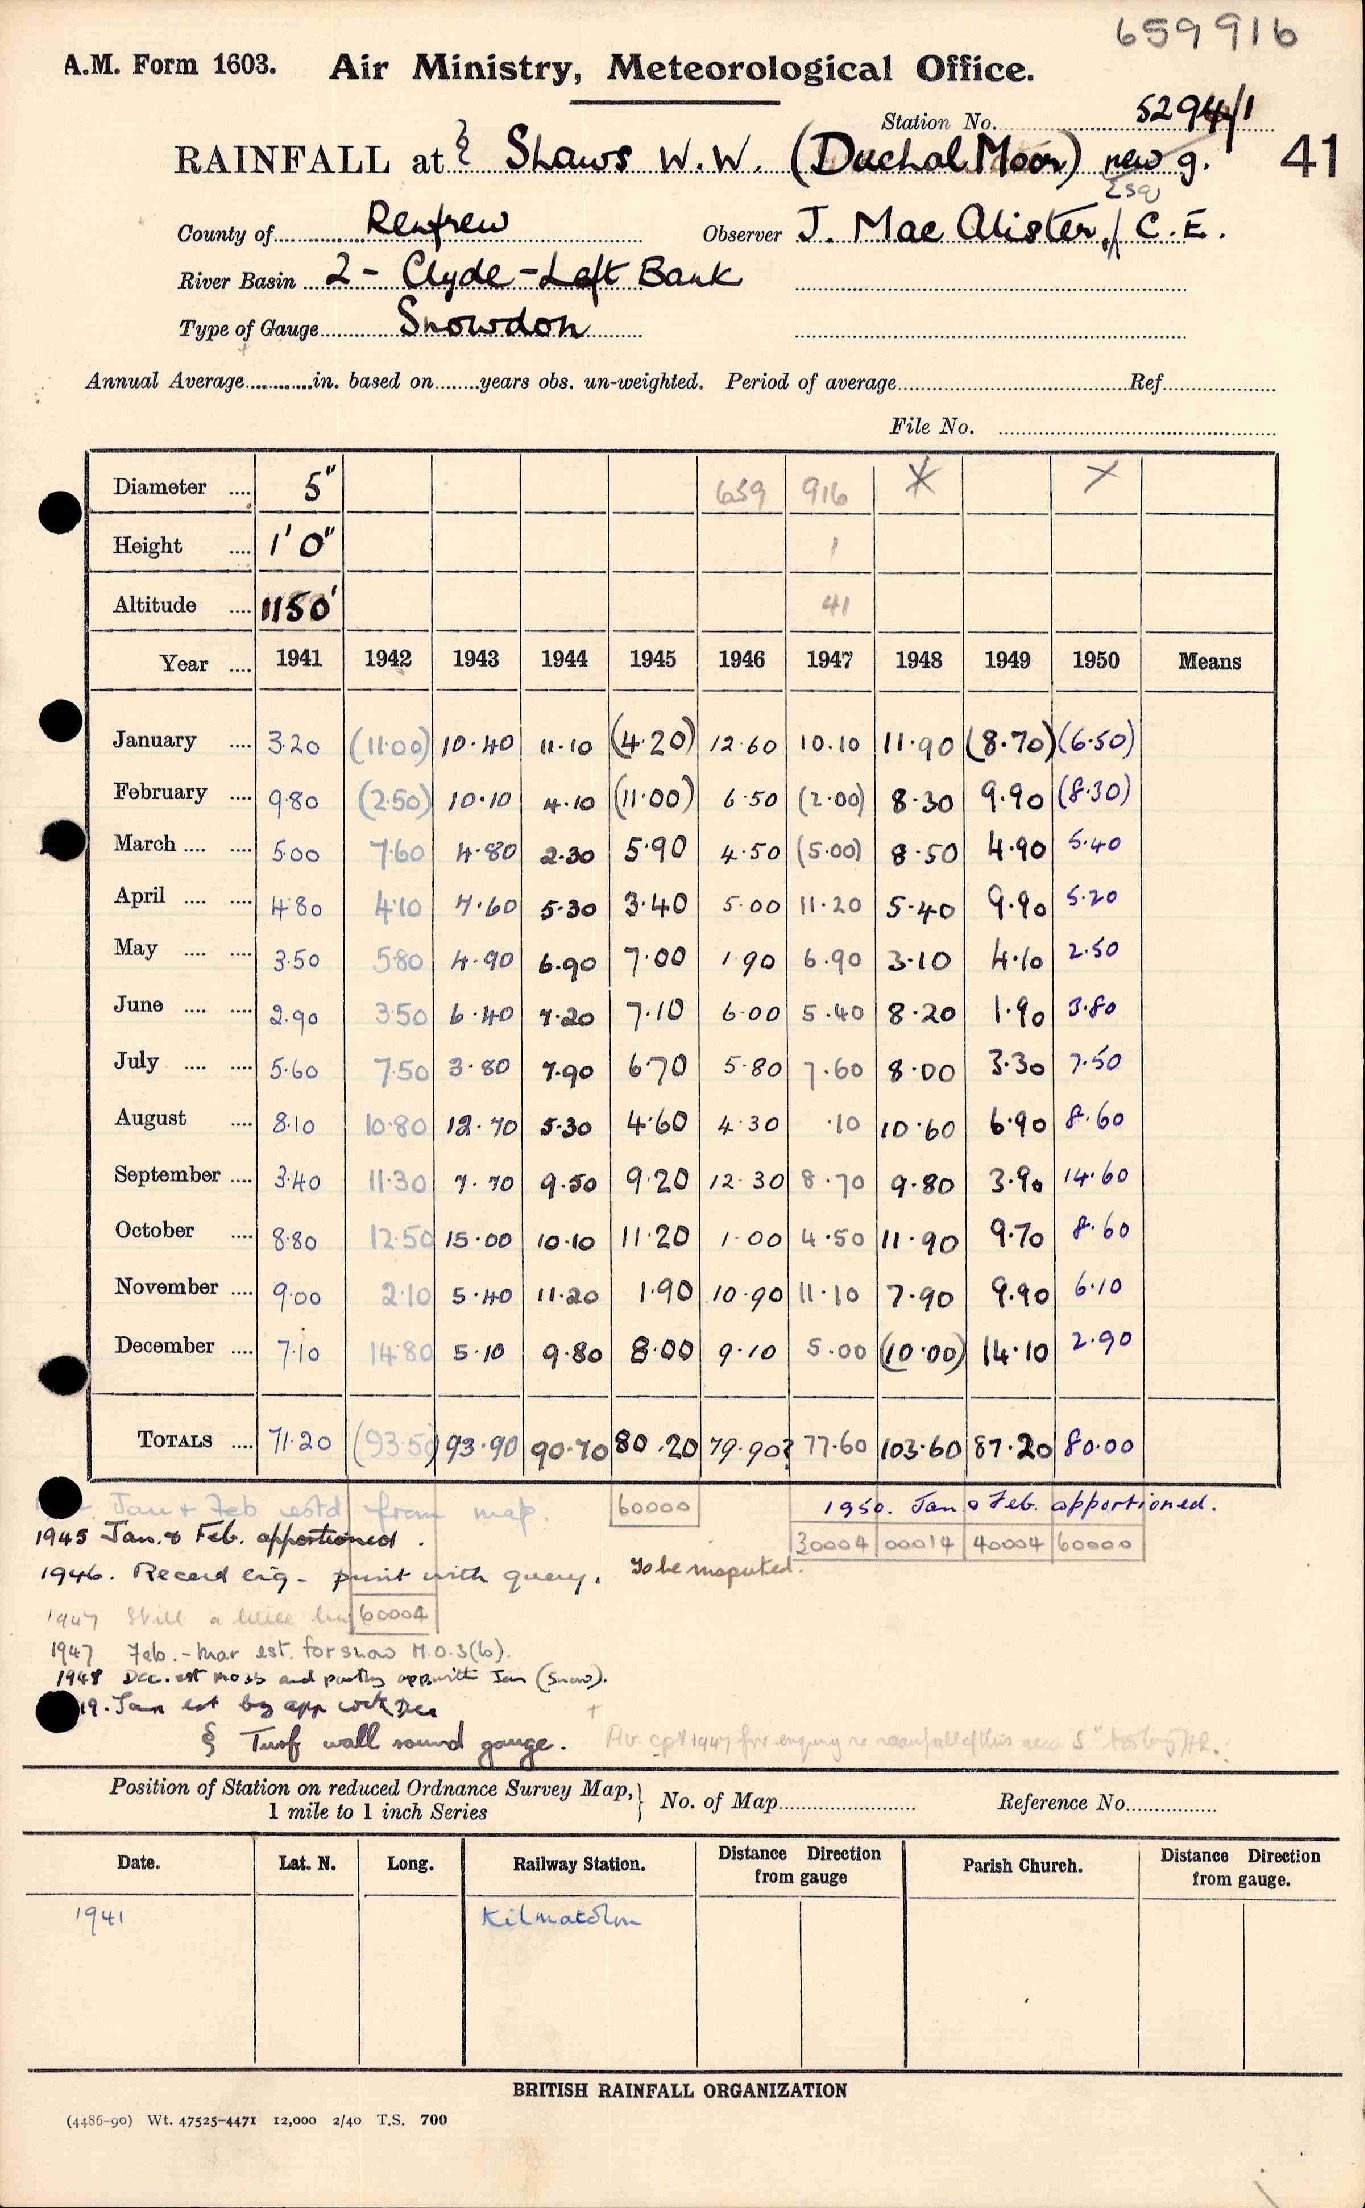 659916
A.M. Form 1603. Air Ministry, Meteorological Office.
Station No. 5294/1
RAINFALL at § Shaws W.W. (Duchal Moor) new g. 41
Esq
County of Renfrew Observer J. Mac Alister, C.E.
River Basin 2 - Clyde - Left Bank
Type of Gauge Snowdon
Annual Average............in. based on........years obs. un-weighted. Period of average............Ref............
File No. ............
Diameter .... 5" 659 916
Height .... 1' 0" 1
Altitude .... 1150' 41
Year .... 1941 1942 1943 1944 1945 1946 1947 1948 1949 1950 Means
January .... 3.20 (11.00) 10.40 11.10 (4.20) 12.60 10.10 11.90 (8.70) (6.50)
February .... 9.80 (2.50) 10.10 4.10 (11.00) 6.50 (2.00) 8.30 9.90 (8.30)
March .... .... 5.00 7.60 4.80 2.30 5.90 4.50 (5.00) 8.50 4.90 5.40
April .... .... 4.80 4.10 7.60 5.30 3.40 5.00 11.20 5.40 9.90 5.20
May .... .... 3.50 5.80 4.90 6.90 7.00 1.90 6.90 3.10 4.10 2.50
June .... .... 2.90 3.50 6.40 7.20 7.10 6.00 5.40 8.20 1.90 3.80
July .... .... 5.60 7.50 3.80 7.90 6.70 5.80 7.60 8.00 3.30 7.50
August .... 8.10 10.80 12.70 5.30 4.60 4.30 .10 10.60 6.90 8.60
September .... 3.40 11.30 7.70 9.50 9.20 12.30 8.70 9.80 3.90 14.60
October .... 8.80 12.50 15.00 10.10 11.20 1.00 4.50 11.90 9.70 8.60
November .... 9.00 2.10 5.40 11.20 1.90 10.90 11.10 7.90 9.90 6.10
December .... 7.10 14.80 5.10 9.80 8.00 9.10 5.00 (10.00) 14.10 2.90
TOTALS .... 71.20 (93.50) 93.90 90.70 80.20 79.90? 77.60 103.60 87.20 80.00
Jan & Feb estd from map. 60000 1950. Jan & Feb. apportioned.
1945 Jan. & Feb. apportioned. 30004 00014 40004 60000
1946. Record enq - print with query. To be maputed.
1947 Still a little 60004
1947 Feb. - Mar est. for snow M.O.3(b).
1948 Dec. est and partly app with Jan (Snow).
19. Jan est by app with Dec
§ Turf wall round gauge.
Position of Station on reduced Ordnance Survey Map,} No. of Map............ Reference No............
1 mile to 1 inch Series
Date. Lat. N. Long. Railway Station. Distance Direction from gauge Parish Church. Distance Direction from gauge.
1941 Kilmacolm
BRITISH RAINFALL ORGANIZATION
(4486-90) Wt. 47525-4471 12,000 2/40 T.S. 700